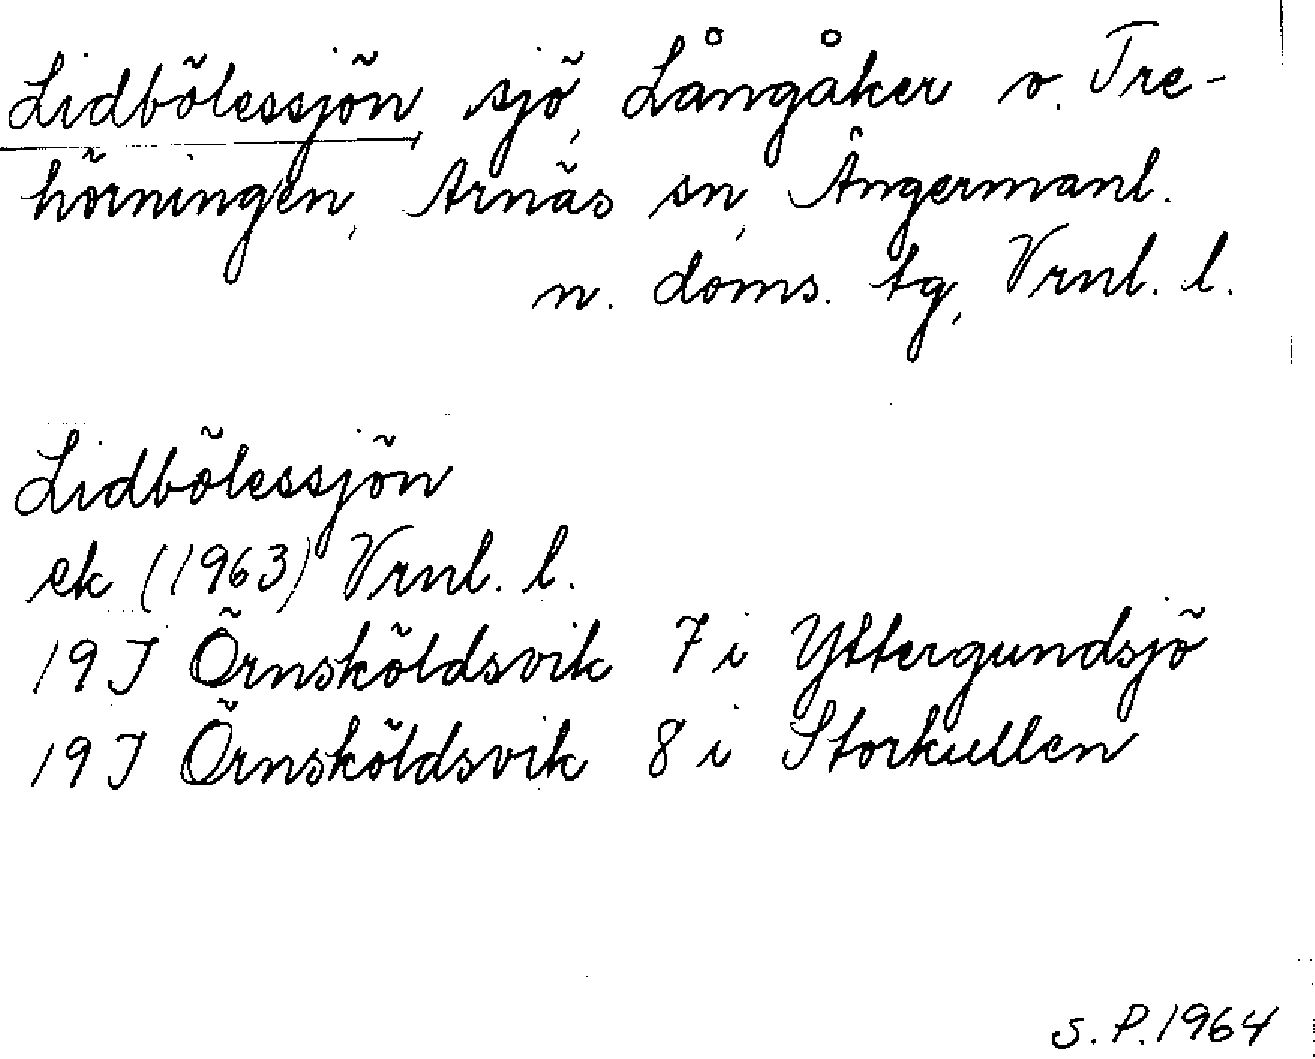 Lidbölessjön, sjö, Långåker o. Tre-
hörningen, Arnäs sn, Ångermanl.
n. doms. tg, Vrnl. l.
Lidbölessjön
ek (1963) Vrnl. l.
19J Örnsköldsvik 7i Yttergundsjö
19J Örnsköldsvik 8i Storkullen
S.P.1964